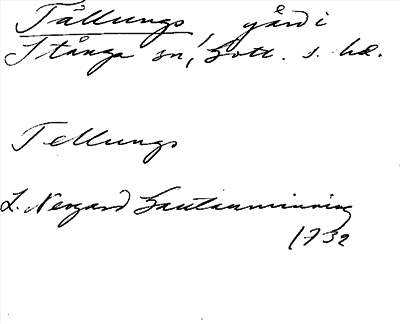 Tällungs, gård i
Stånga sn, Gotl. s. hd.
Tellungs
L. Nergard Gautauminning
1732